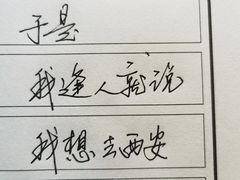 于是
我逢人就说
我想去西安